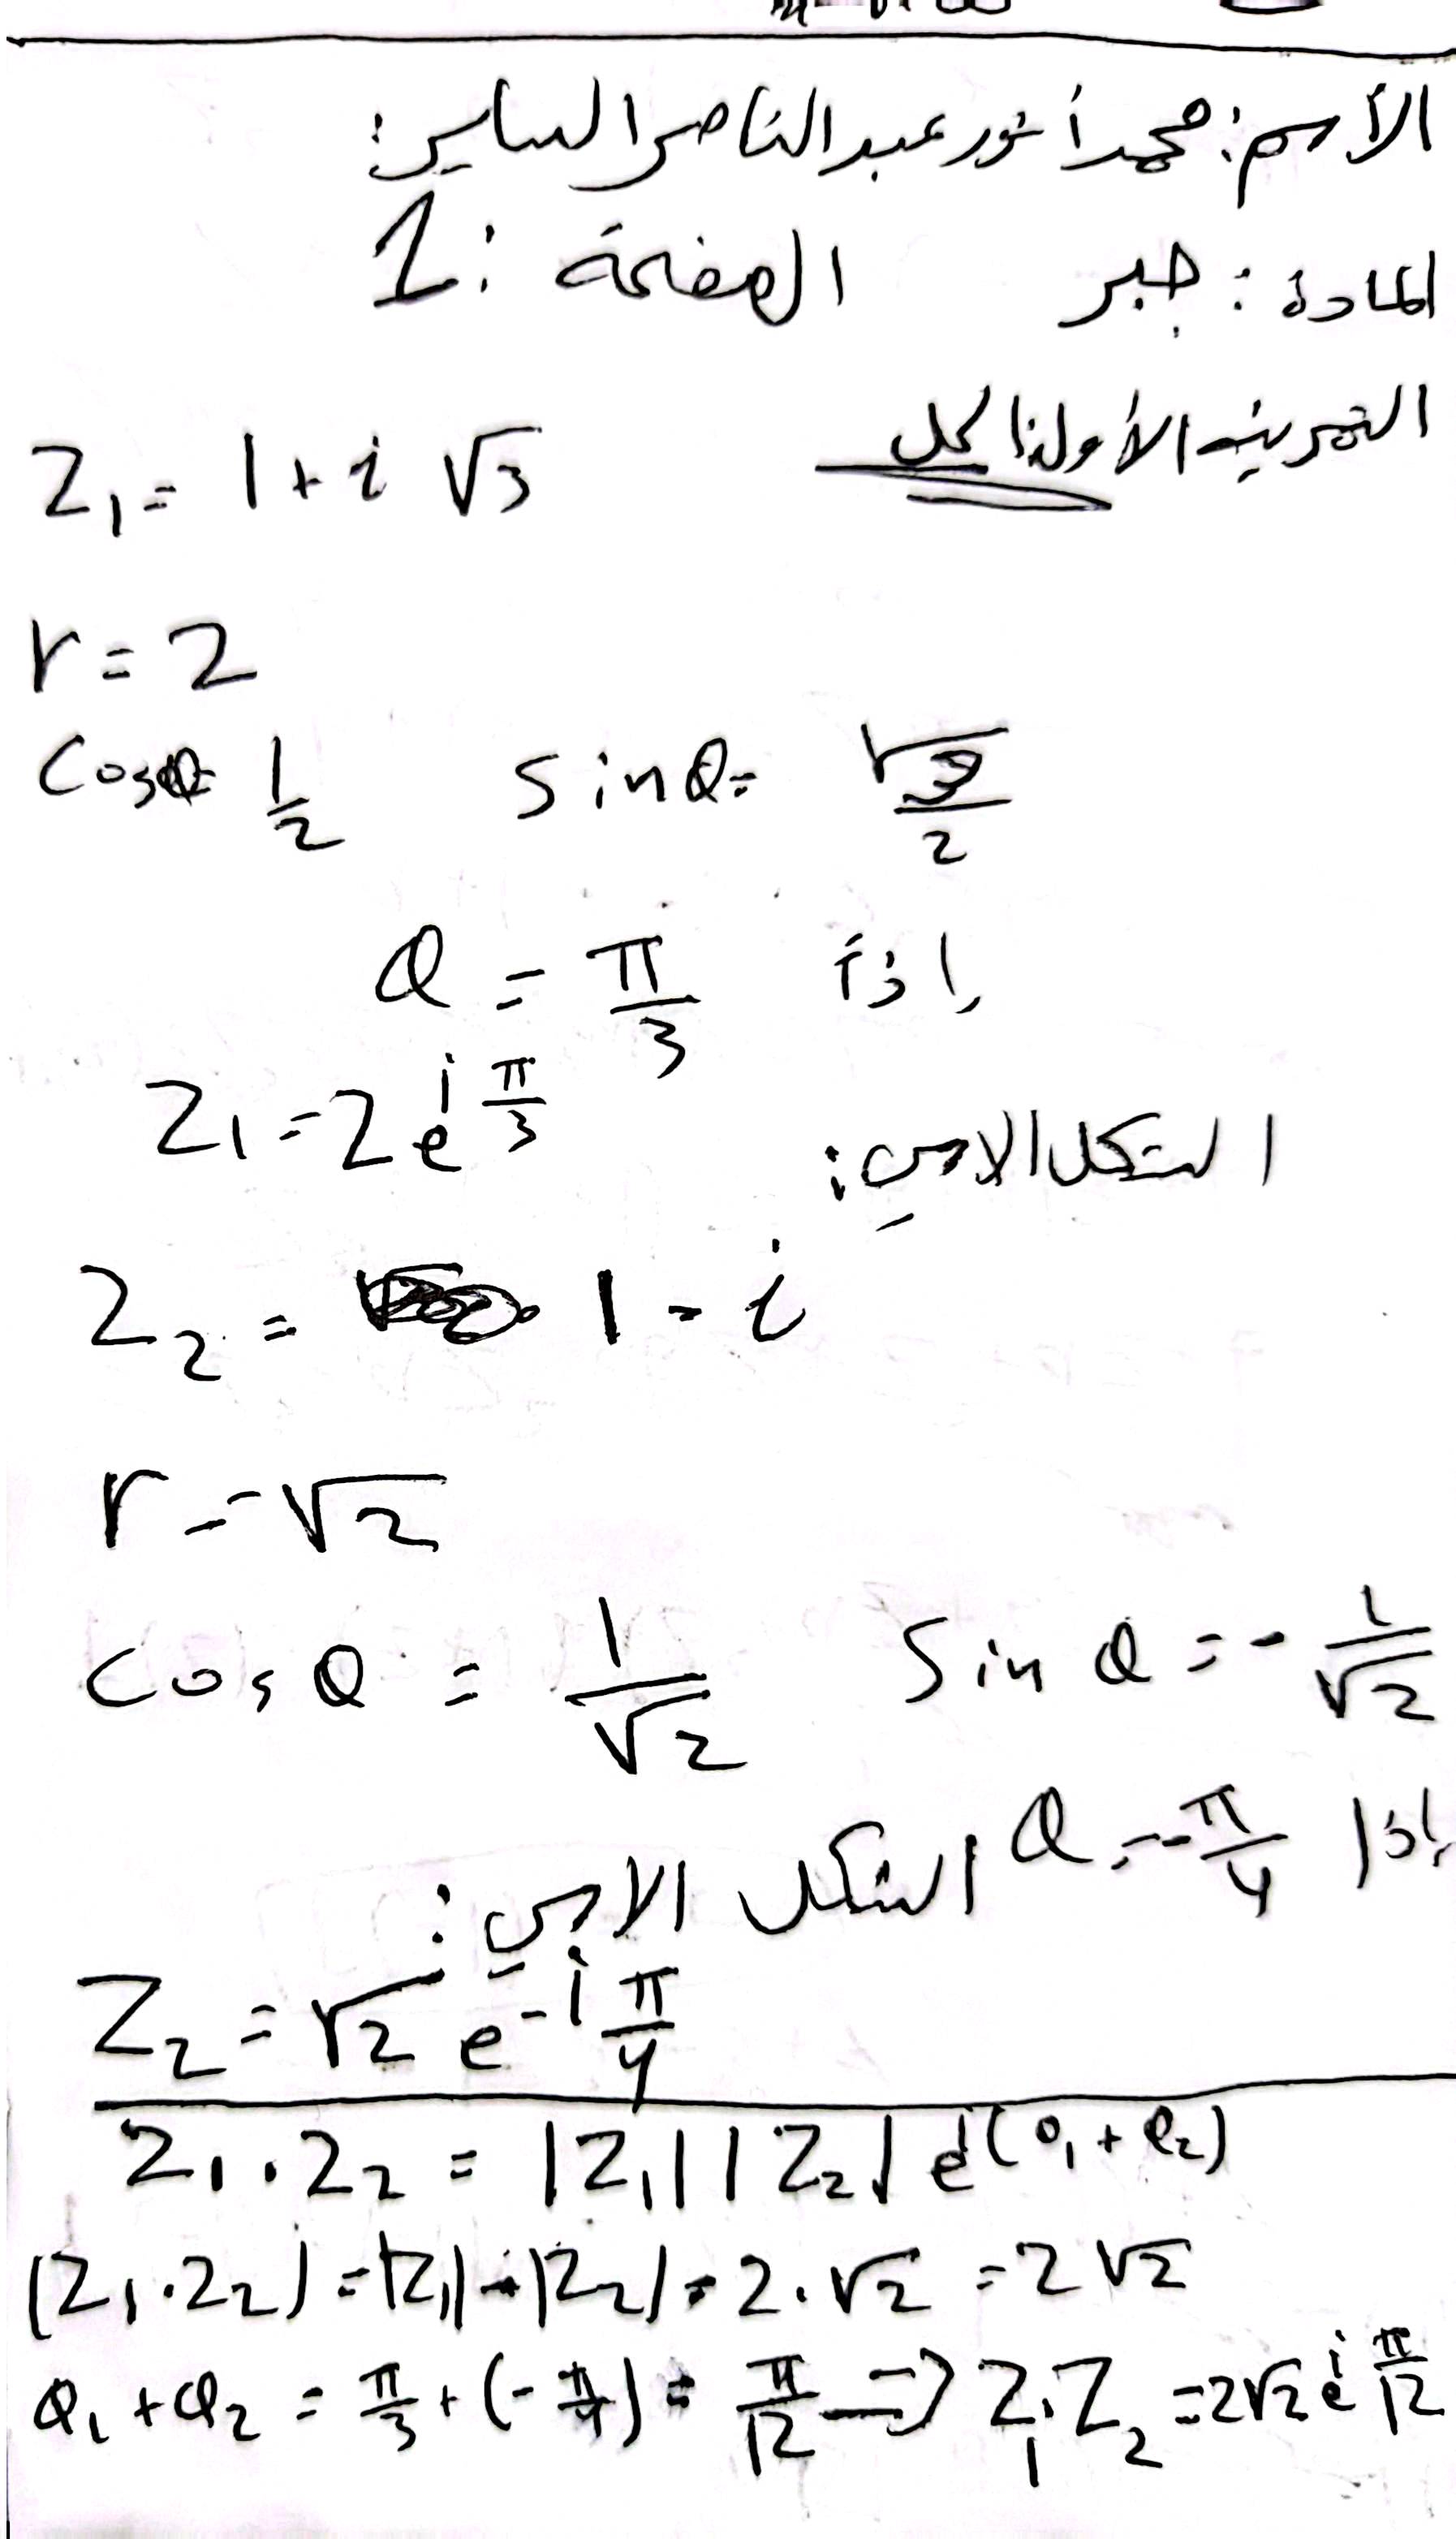 الأسم: محمد أنور عبد الناصر الساير:
المادة: جبر الصفحة: 1
التمرين الأول: الحل
Z₁ = 1 + i √3
r = 2
cosθ = 1/2 sinθ = √3/2
إذاً θ = π/3
الشكل الاسي: Z₁ = 2 e^(i π/3)
Z₂ = 1 - i
r = √2
cosθ = 1/√2 sinθ = - 1/√2
إذا θ = -π/4 الشكل الاسي:
Z₂ = √2 e^(-i π/4)
Z₁ . Z₂ = |Z₁| |Z₂| e^(i(θ₁ + θ₂))
|Z₁ . Z₂| = |Z₁| . |Z₂| = 2 . √2 = 2√2
θ₁ + θ₂ = π/3 + (- π/4) = π/12 => Z₁ . Z₂ = 2√2 e^(i π/12)